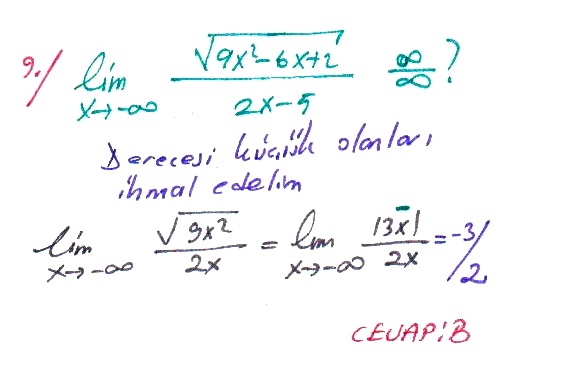 9./ lim x→-∞ √(9x²-6x+2) / (2x-5) ∞/∞ ?
Derecesi küçük olanları
ihmal edelim
lim x→-∞ √(9x²) / 2x = lim x→-∞ |3x| / 2x = -3/2
CEVAP:B